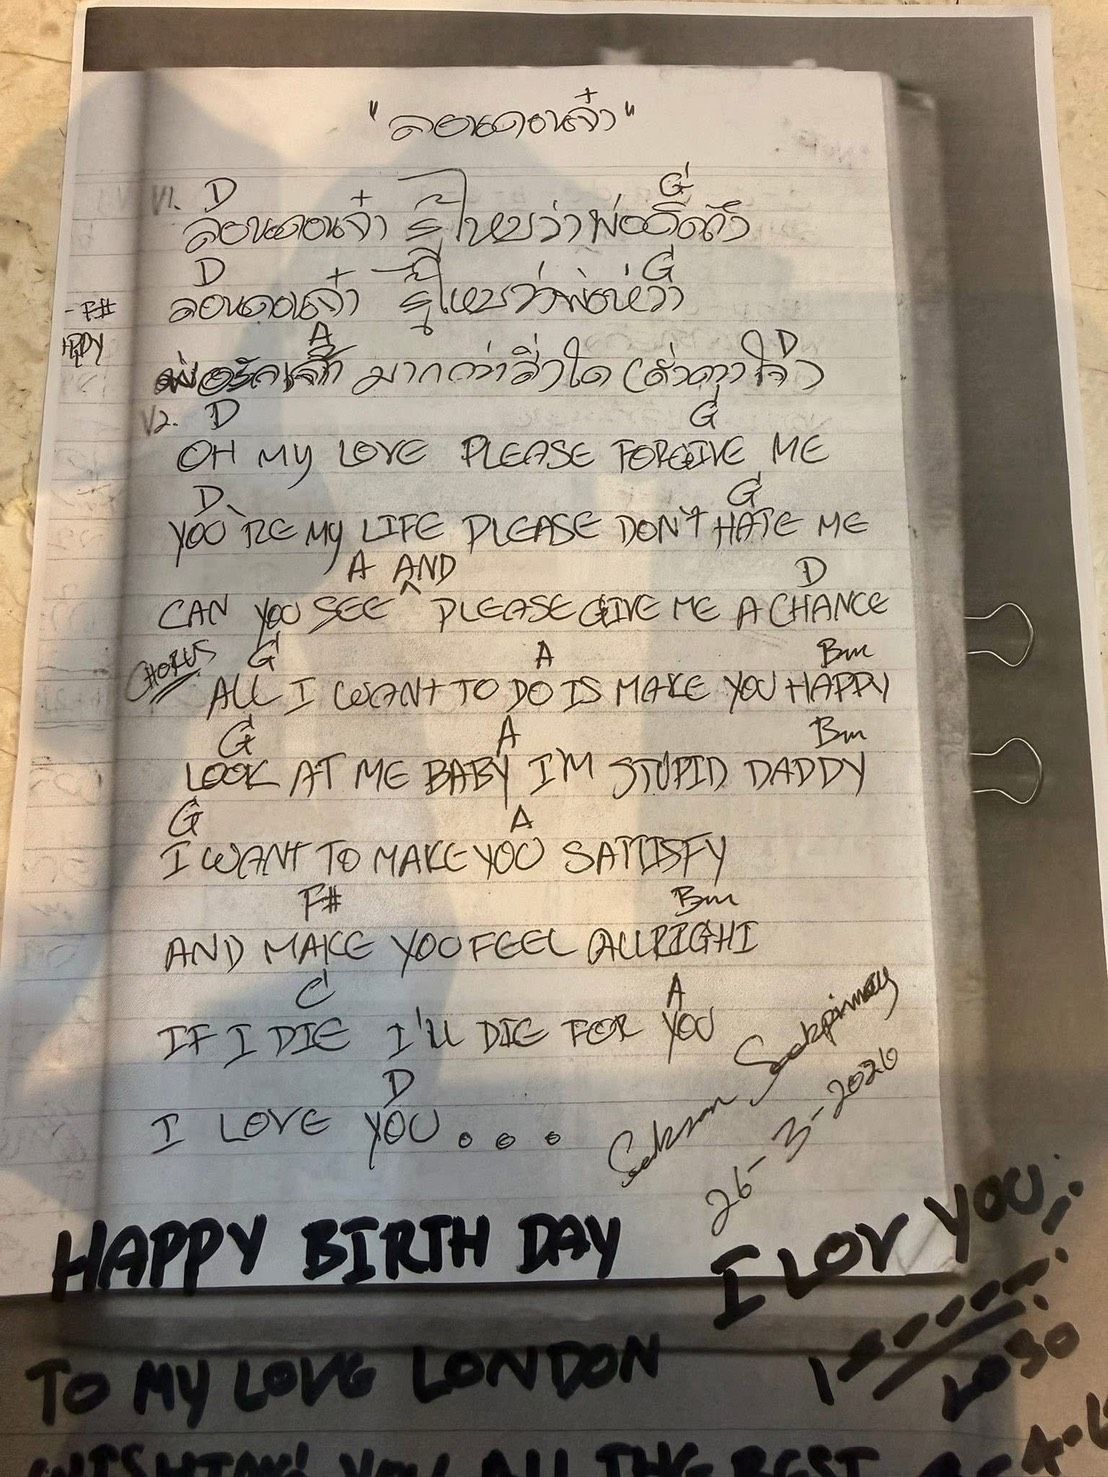 "ลอนดอนจ๋า"
V1. D G
ลอนดอนจ๋า รู้ไหมว่าพ่อคิดถึง
D G
ลอนดอนจ๋า รู้ไหมว่าพ่อห่วง
- F#
HAPPY
A D
พ่อรักเจ้า มากกว่าสิ่งใด (ดั่งดวงใจ)
V2. D G
OH MY LOVE PLEASE FORGIVE ME
D G
YOU'RE MY LIFE PLEASE DON'T HATE ME
A AND D
CAN YOU SEE ^ PLEASE GIVE ME A CHANCE
CHORUS G A Bm
ALL I WANT TO DO IS MAKE YOU HAPPY
G A Bm
LOOK AT ME BABY I'M STUPID DADDY
G A
I WANT TO MAKE YOU SATISFY
F# Bm
AND MAKE YOU FEEL ALLRIGHT
C A
IF I DIE I'LL DIE FOR YOU
D
I LOVE YOU . . .
Seksan Sookpimay
26-3-2026
HAPPY BIRTH DAY
I LOV YOU
TO MY LOVE LONDON
LOSO
WISHING YOU ALL THE BEST